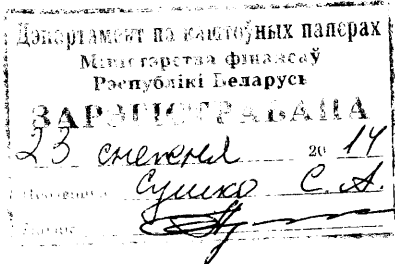 Дэпартамент па каштоўных паперах
Міністэрства фінансаў
Рэспублікі Беларусь
ЗАРЭГІСТРАВАНА
23 снежня 2014
Сушко С. А.